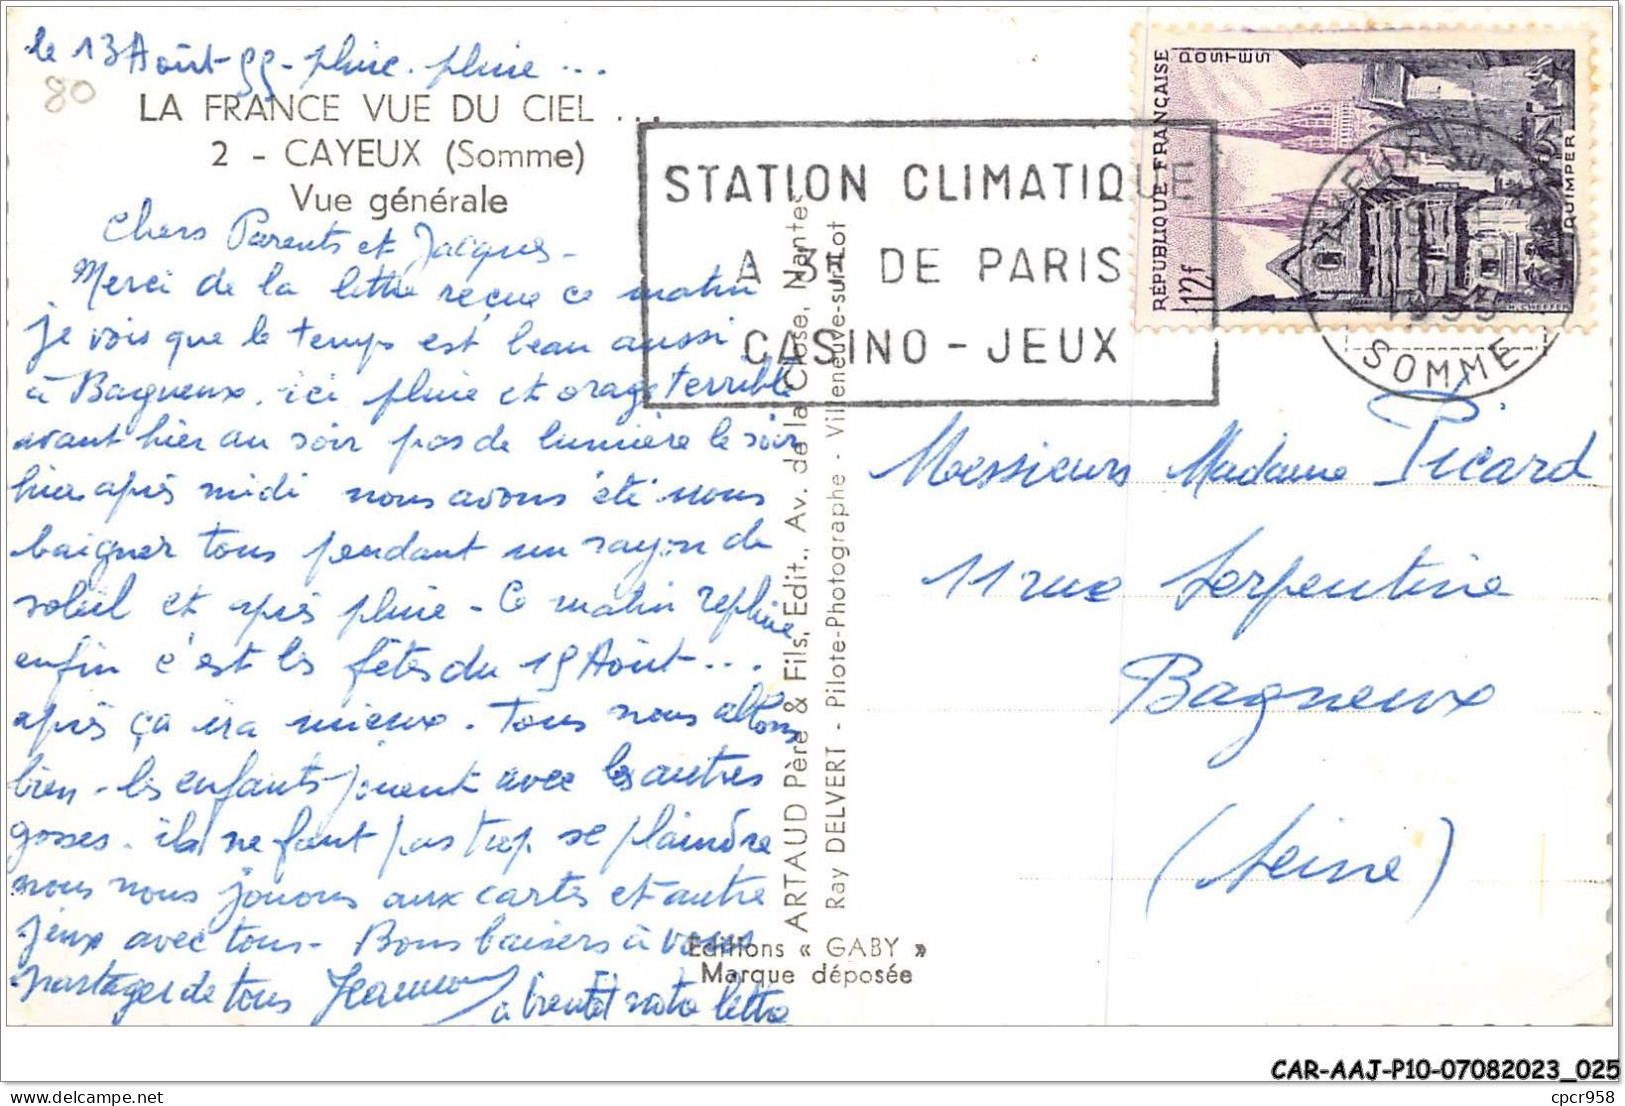 le 13 Août 55 - pluie. pluie ...
80
LA FRANCE VUE DU CIEL ...
2 - CAYEUX (Somme)
Vue générale
Chers Parents et Jacques -
Merci de la lettre reçue ce matin
je vois que le temps est beau aussi
à Bagneux. ici pluie et orage terrible
avant hier au soir pas de lumière le soir
hier après midi nous avons été nous
baigner tous pendant un rayon de
soleil et après pluie - Ce matin repluie
enfin c'est les fêtes du 15 Août ...
après ça ira mieux. Tous nous allons
bien - les enfants jouent avec les autres
gosses. il ne faut pas trop se plaindre
nous nous jouons aux cartes et autre
jeux avec tous - Bons baisers à vous
partager de tous
à bientôt votre lettre
STATION CLIMATIQUE
A 3H DE PARIS
CASINO - JEUX
RÉPUBLIQUE FRANÇAISE
POSTES
12f
QUIMPER
CAYEUX SUR MER
1955
SOMME
ARTAUD Père & Fils, Edit., Av. de la Close, Nantes
Ray DELVERT - Pilote-Photographe - Villeneuve-sur-Lot
Editions « GABY »
Marque déposée
Messieurs Madame Picard
11 rue Serpentine
Bagneux
(Seine)
CAR-AAJ-P10-07082023_025
cpcr958